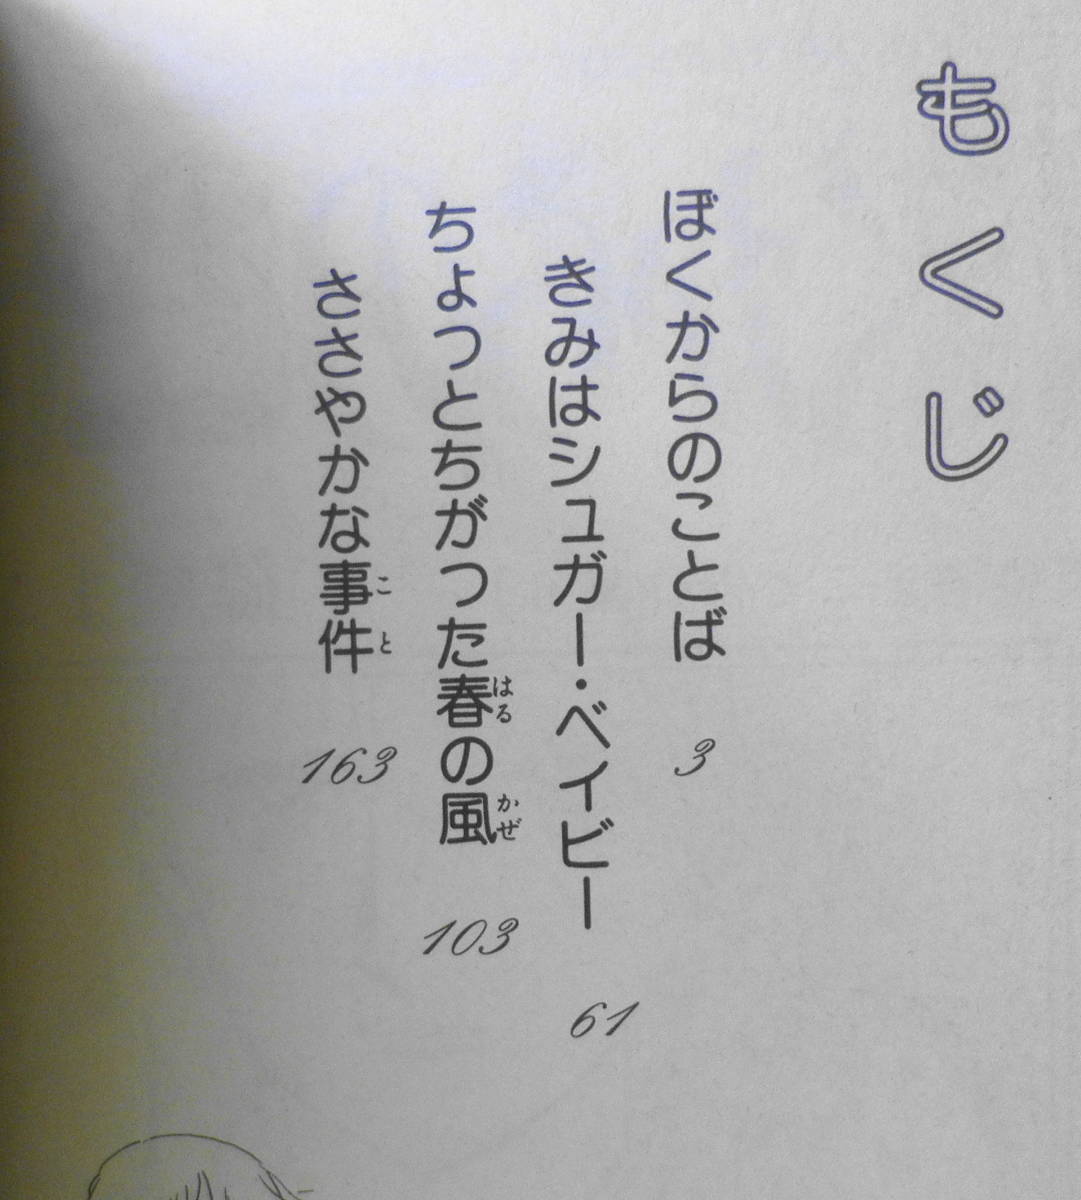 もくじ
ぼくからのことば 3
きみはシュガー・ベイビー 61
ちょっとちがった春の風 103
はる
かぜ
ささやかな事件 163
こと